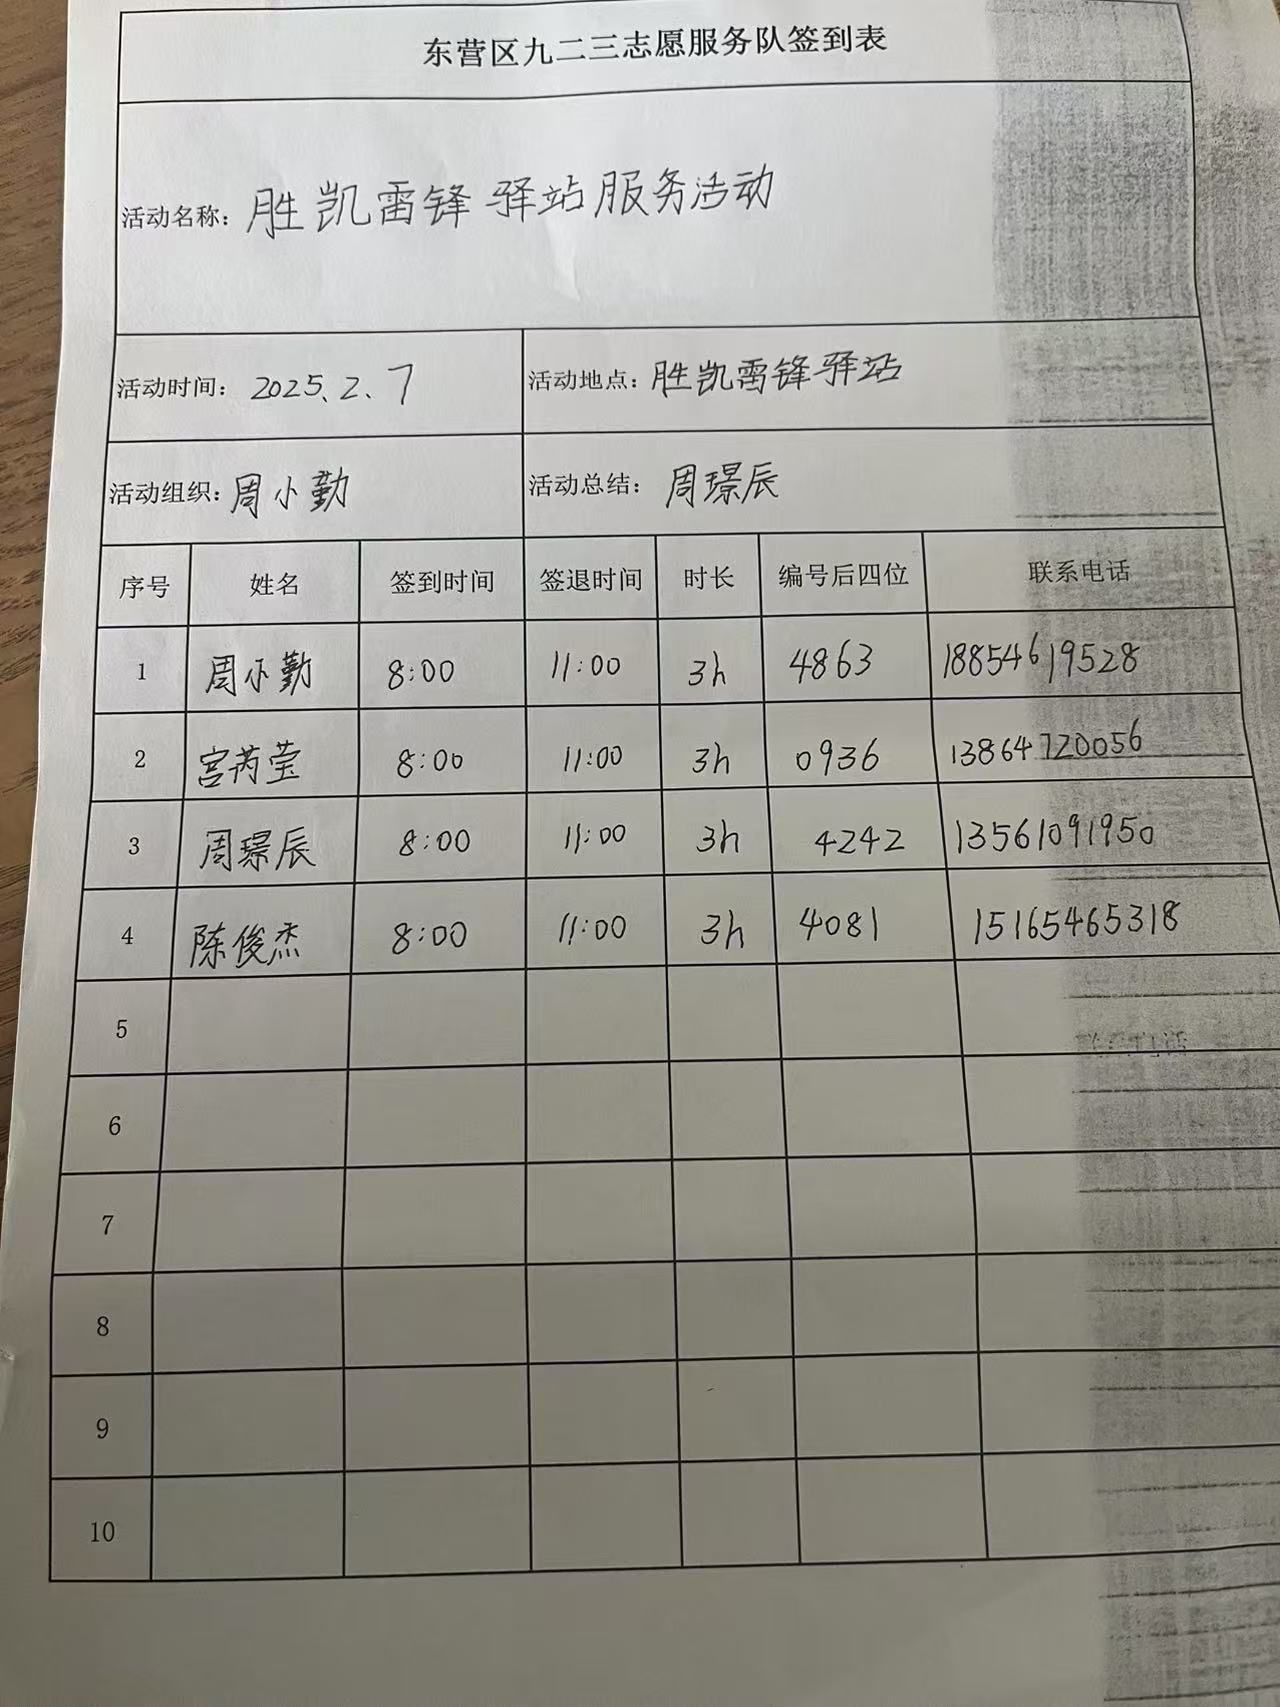 东营区九二三志愿服务队签到表
活动名称：胜凯雷锋驿站服务活动
活动时间：2025.2.7 活动地点：胜凯雷锋驿站
活动组织：周小勤 活动总结：周璟辰
序号 姓名 签到时间 签退时间 时长 编号后四位 联系电话
1 周小勤 8:00 11:00 3h 4863 18854619528
2 宫芮莹 8:00 11:00 3h 0936 13864720056
3 周璟辰 8:00 11:00 3h 4242 13561091950
4 陈俊杰 8:00 11:00 3h 4081 15165465318
5
6
7
8
9
10